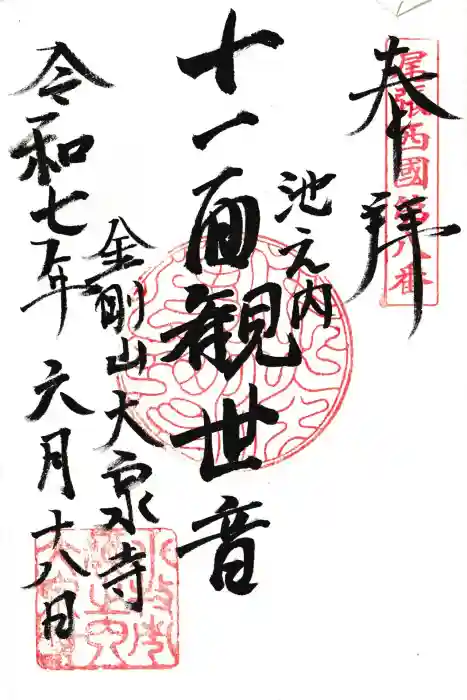 奉拝
尾張西國第八番
池之内
十一面観世音
金剛山大泉寺
令和七年六月十八日